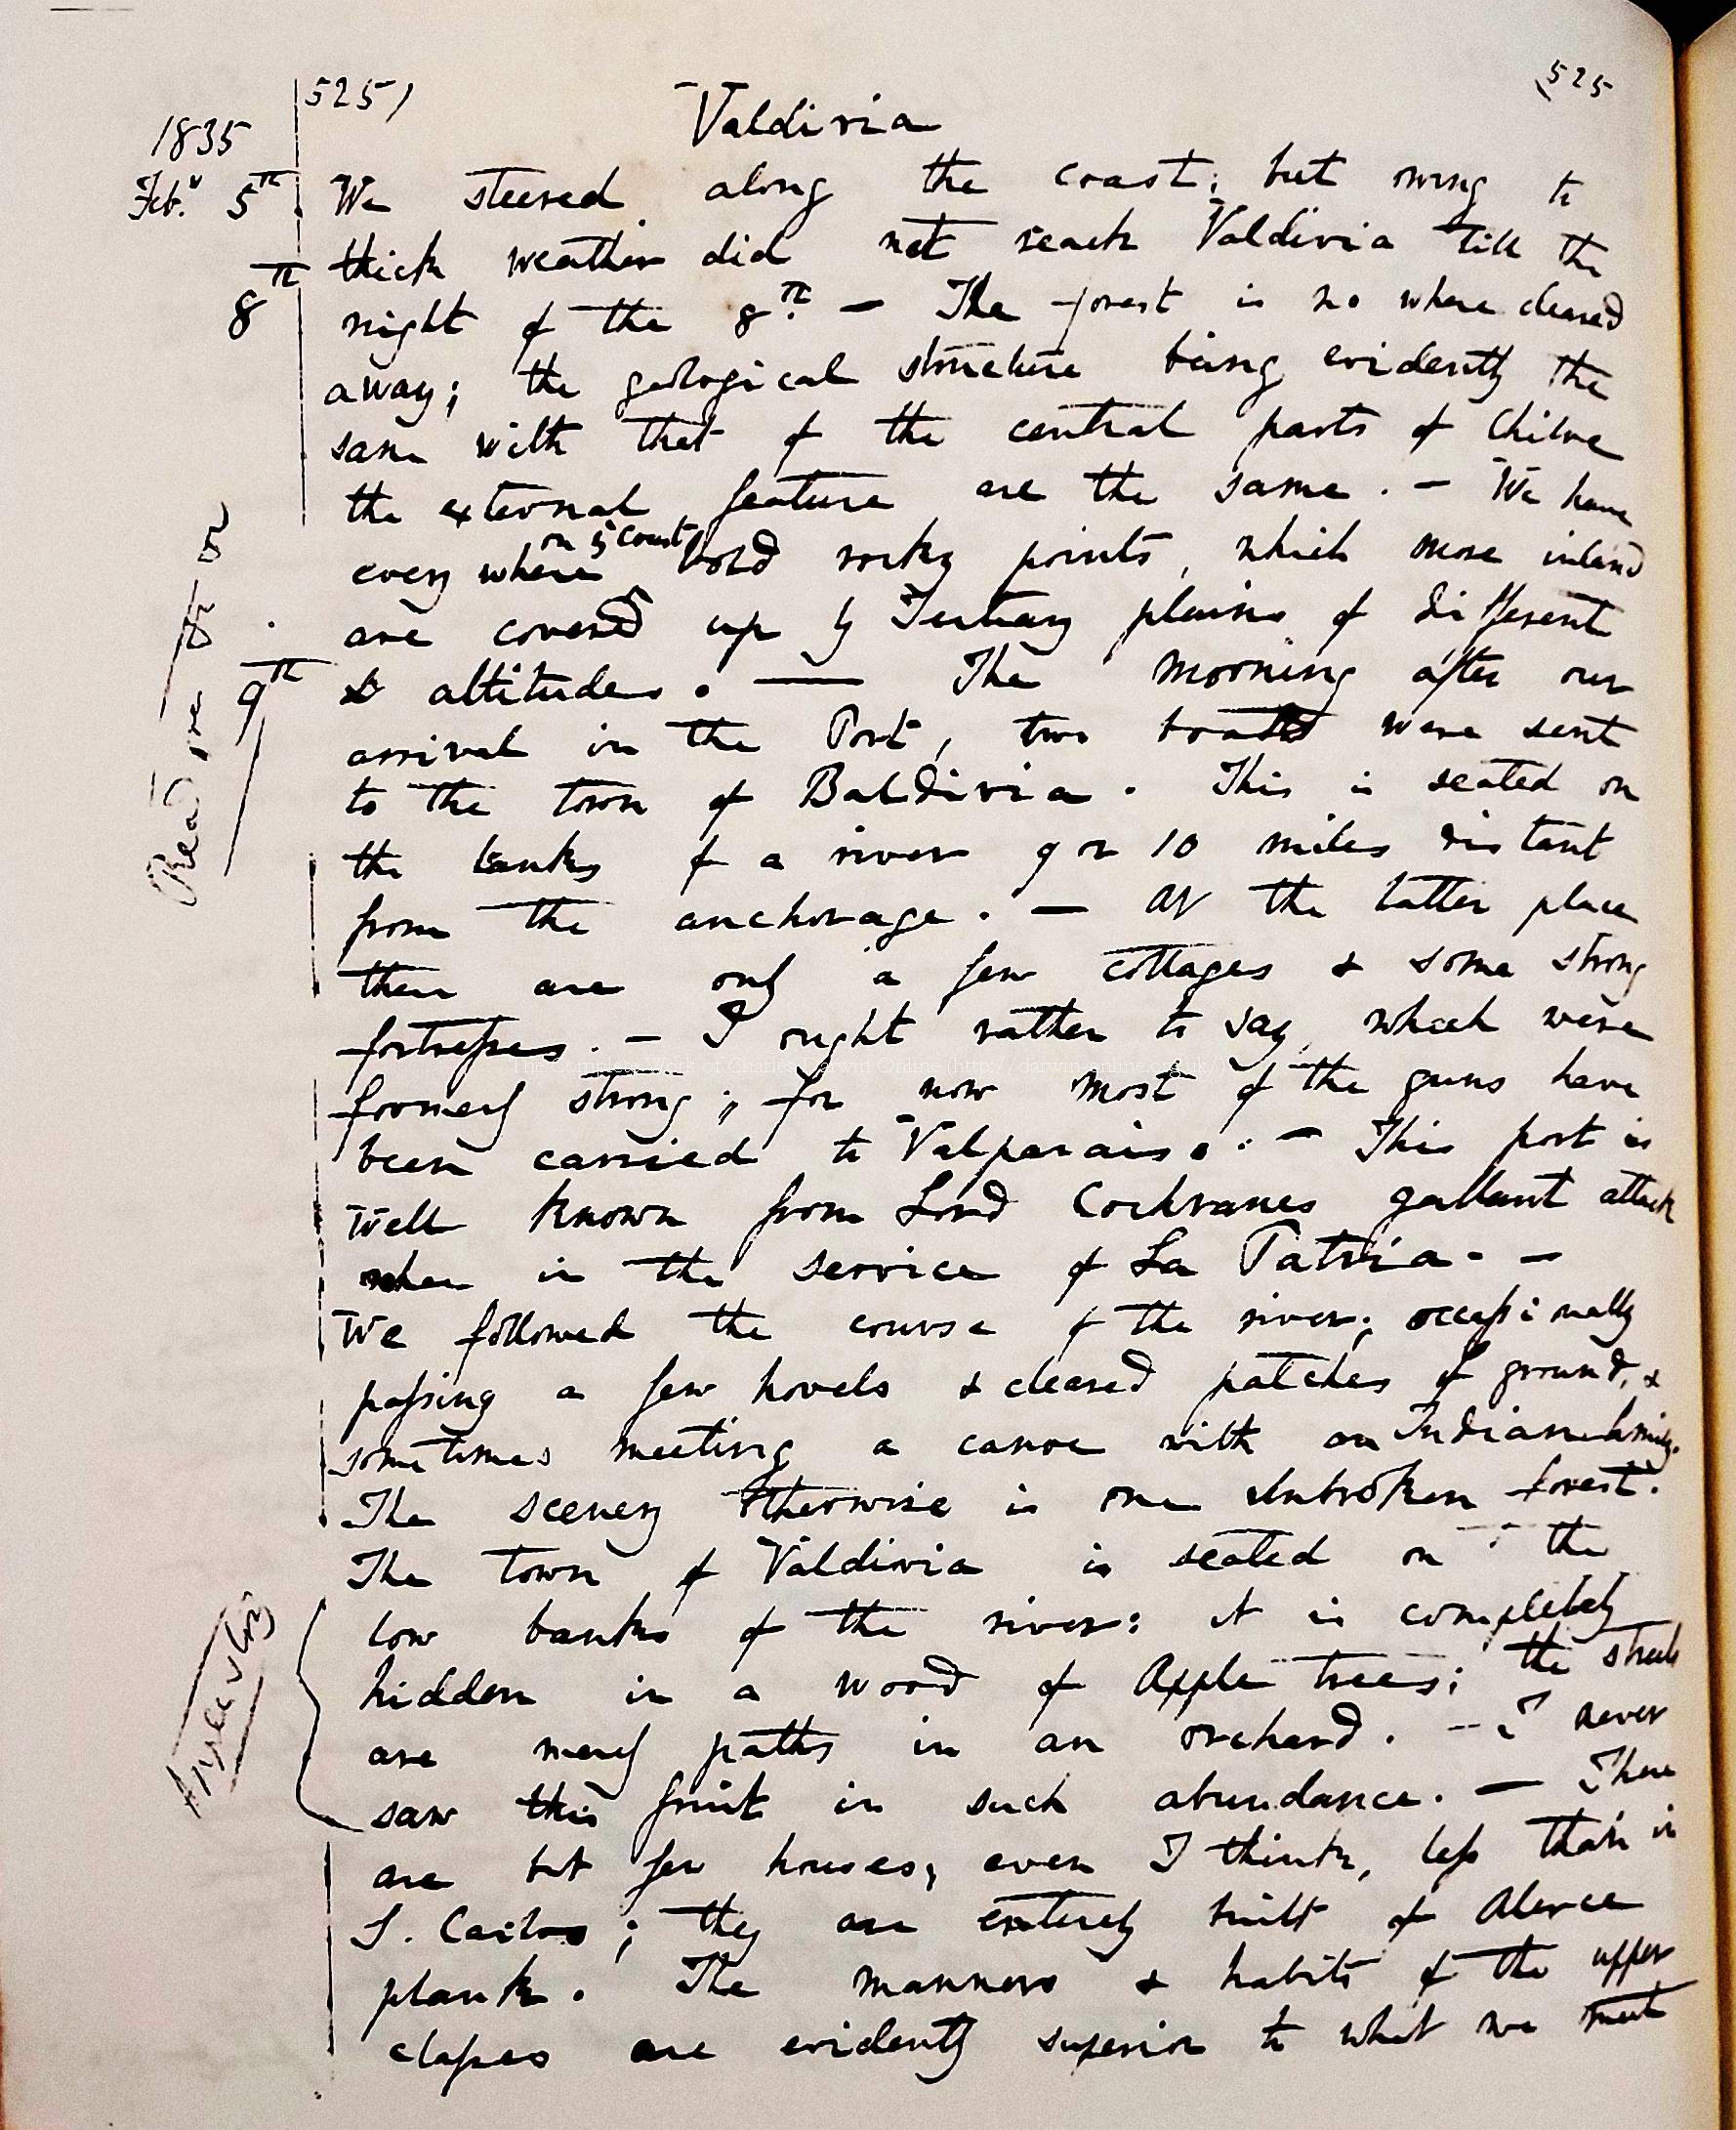 525)
525
Valdivia
1835
Feb.y 5th
We steered along the coast; but owing to
thick weather did not reach Valdivia till the
8th
night of the 8th. — The forest is no where cleared
away; the geological structure being evidently the
same with that of the central parts of Chiloe
the external feature are the same. — We have
on ye coast
every where bold rocky points, which more inland
are covered up by Tertiary plains of different
9th
altitudes. — The morning after our
arrival in the Port, two boats were sent
to the town of Baldivia. This is seated on
the banks of a river 9 or 10 miles distant
from the anchorage. — At the latter place
there are only a few cottages & some strong
fortresses. — I ought rather to say, which were
formerly strong; for now most of the guns have
been carried to Valparaiso. — This port is
well known from Lord Cochranes gallant attack
when in the service of La Patria. —
We followed the course of the river; occassionally
passing a few hovels & cleared patches of ground, &
sometimes meeting a canoe with an Indian family.
The scenery otherwise is one unbroken forest.
The town of Valdivia is seated on the
low banks of the river: it is completely
hidden in a wood of Apple trees; the streets
are merely paths in an orchard. — I never
saw this fruit in such abundance. — There
are but few houses; even I think, less than in
S. Carlos; they are entirely built of Alerce
plank. The manners & habits of the upper
classes are evidently superior to what we meet
Read